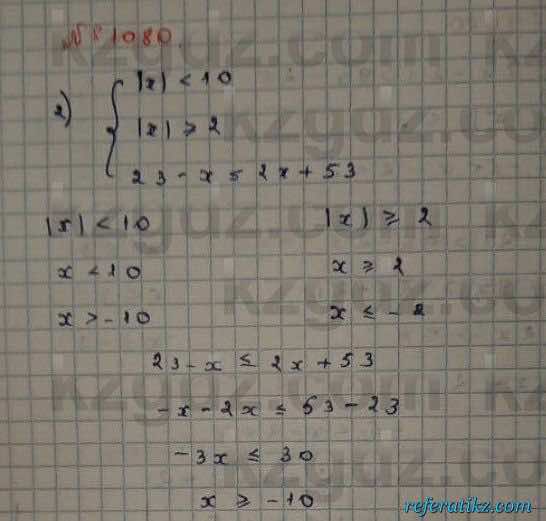 № 1080.
2) { |x| < 10
|x| ≥ 2
23 - x ≤ 2x + 53
|x| < 10
|x| ≥ 2
x < 10
x ≥ 2
x > -10
x ≤ -2
23 - x ≤ 2x + 53
-x - 2x ≤ 53 - 23
-3x ≤ 30
x ≥ -10
referatikz.com